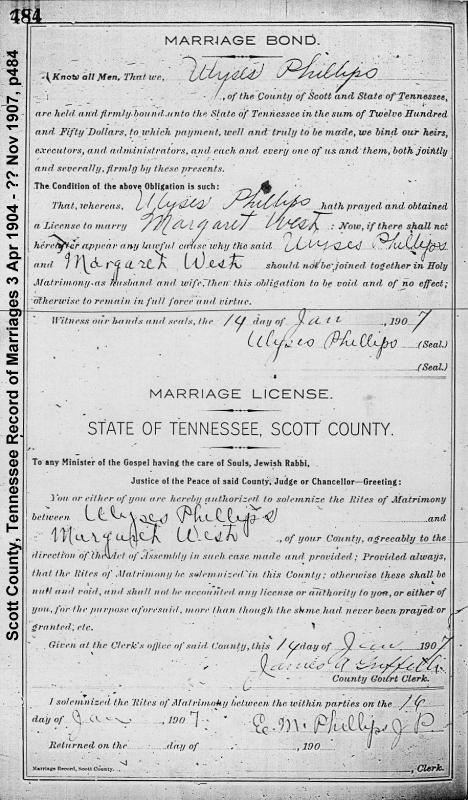 484
Scott County, Tennessee Record of Marriages 3 Apr 1904 - ?? Nov 1907, p484
MARRIAGE BOND.
Know all Men, That we, Ulyses Phillips
, of the County of Scott and State of Tennessee,
are held and firmly bound unto the State of Tennessee in the sum of Twelve Hundred
and Fifty Dollars, to which payment, well and truly to be made, we bind our heirs,
executors, and administrators, and each and every one of us and them, both jointly
and severally, firmly by these presents.
The Condition of the above Obligation is such:
That, whereas, Ulyses Phillips hath prayed and obtained
a License to marry Margaret West : Now, if there shall not
hereafter appear any lawful cause why the said Ulyses Phillips
and Margaret West should not be joined together in Holy
Matrimony as husband and wife, then this obligation to be void and of no effect;
otherwise to remain in full force and virtue.
Witness our hands and seals, the 14 day of Jan , 1907
Ulyses Phillips (Seal.)
(Seal.)
MARRIAGE LICENSE.
STATE OF TENNESSEE, SCOTT COUNTY.
To any Minister of the Gospel having the care of Souls, Jewish Rabbi,
Justice of the Peace of said County, Judge or Chancellor—Greeting:
You or either of you are hereby authorized to solemnize the Rites of Matrimony
between Ulyses Phillips and
Margaret West , of your County, agreeably to the
direction of the Act of Assembly in such case made and provided; Provided always,
that the Rites of Matrimony be solemnized in this County; otherwise these shall be
null and void, and shall not be accounted any license or authority to you, or either of
you, for the purpose aforesaid, more than though the same had never been prayed or
granted, etc.
Given at the Clerk's office of said County, this 14 day of Jan 1907
James A Griffith
County Court Clerk.
I solemnized the Rites of Matrimony between the within parties on the 14
day of Jan 1907. E. M. Phillips J P
Returned on the day of , 190
Marriage Record, Scott County. , Clerk.